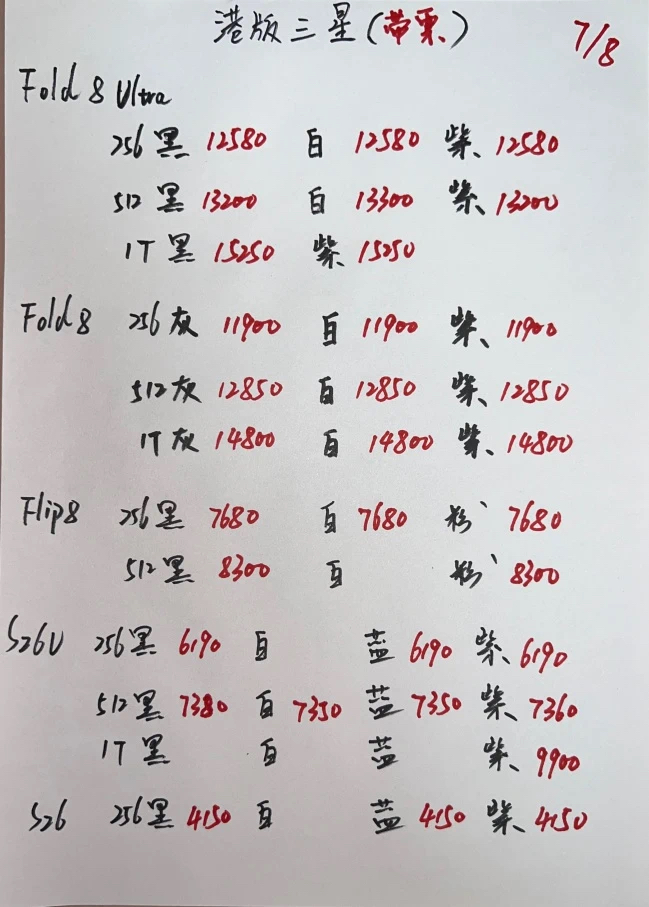 港版三星(带票) 7/8
Fold 8 Ultra
256 黑 12580 白 12580 紫 12580
512 黑 13200 白 13300 紫 13200
1T 黑 15250 紫 15250
Fold 8 256 灰 11900 白 11900 紫 11900
512 灰 12850 白 12850 紫 12850
1T 灰 14800 白 14800 紫 14800
Flip8 256 黑 7680 白 7680 粉 7680
512 黑 8300 白 粉 8300
S26U 256 黑 6190 白 蓝 6190 紫 6190
512 黑 7380 白 7350 蓝 7350 紫 7360
1T 黑 白 蓝 紫 9900
S26 256 黑 4150 白 蓝 4150 紫 4150